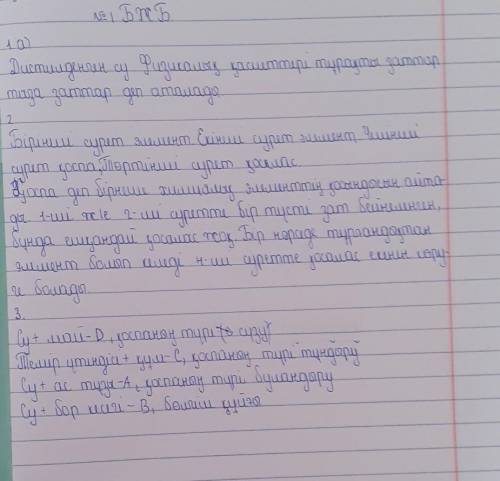 №1 БЖБ
1 а)
Дистилденген су Физикалық қасиеттері тұрақты заттар
таза заттар деп аталады
2
Бірінші сурет элемент Екінші сурет элемент, Үшінші
сурет қоспа, Төртінші сурет қосылыс
Қоспа деп бірнеше химиялық элементтің қосындысын айта-
ды 1-ші және 2-ші суретте бір түсті зат бейнеленген,
бұнда ешқандай қосылыс жоқ. Бір нәрседе тұрғандықтан
элемент болып келеді 4-ші суретте қосылыс екенін көру-
ге болады
3.
Су + май - D, қоспаның түрі сүзу
Темір үтіндісі + құм - C, қоспаның түрі тұндыру
Су + ас тұзы - A, қоспаның түрі буландыру
Су + бор - B, бөлгіш құйғы